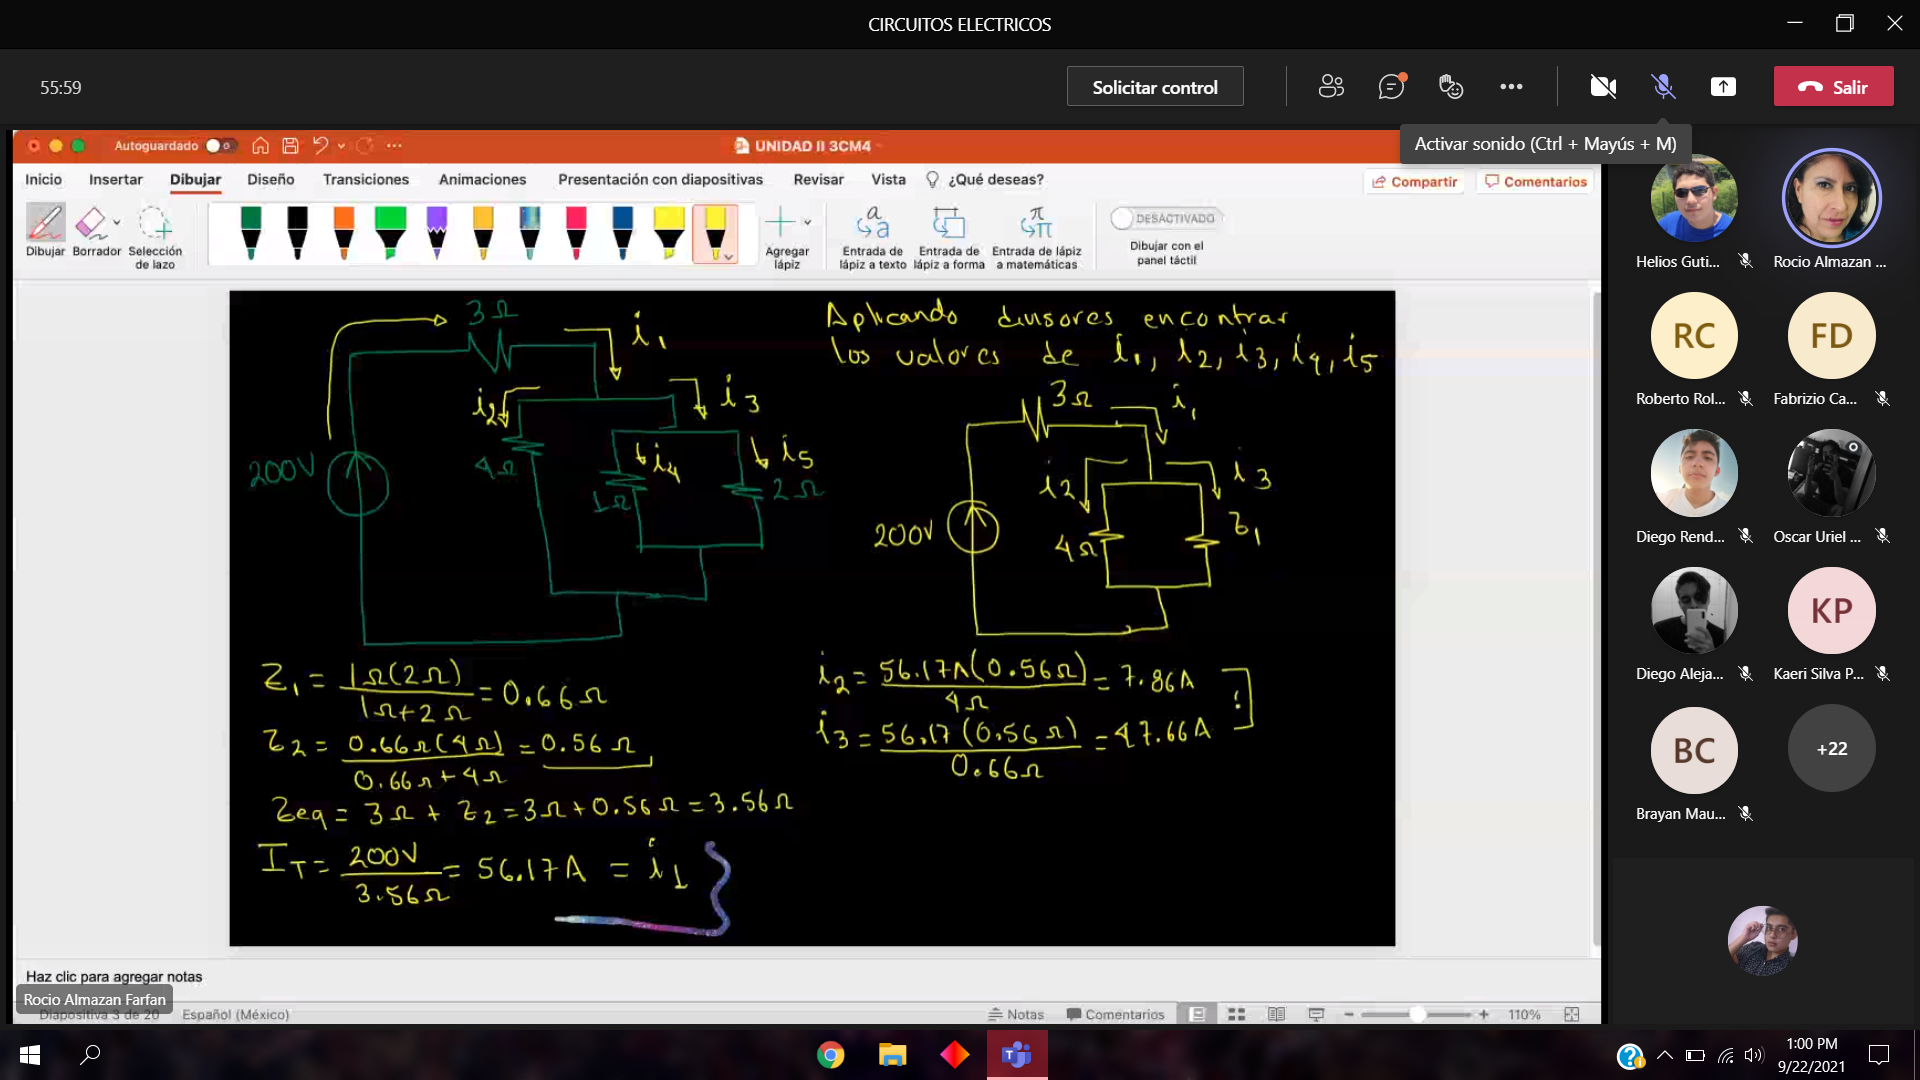 CIRCUITOS ELECTRICOS
55:59
Solicitar control
Salir
Activar sonido (Ctrl + Mayús + M)
Autoguardado
UNIDAD II 3CM4
Inicio Insertar Dibujar Diseño Transiciones Animaciones Presentación con diapositivas Revisar Vista ¿Qué deseas?
Compartir Comentarios
Dibujar Borrador Selección de lazo
Agregar lápiz
Entrada de lápiz a texto
Entrada de lápiz a forma
Entrada de lápiz a matemáticas
DESACTIVADO
Dibujar con el panel táctil
3Ω
i1
i2
i3
i4
i5
200V
4Ω
1Ω
2Ω
Aplicando divisores encontrar
los valores de i1, i2, i3, i4, i5
3Ω
i1
i2
i3
200V
4Ω
Z1
Z1 = 1Ω(2Ω) / 1Ω+2Ω = 0.66Ω
Z2 = 0.66Ω(4Ω) / 0.66Ω+4Ω = 0.56Ω
Zeq = 3Ω + Z2 = 3Ω + 0.56Ω = 3.56Ω
IT = 200V / 3.56Ω = 56.17A = i1
i2 = 56.17A(0.56Ω) / 4Ω = 7.86A
i3 = 56.17(0.56Ω) / 0.66Ω = 47.66A
!
Haz clic para agregar notas
Rocio Almazan Farfan
Diapositiva 3 de 20 Español (México)
Notas Comentarios 110%
Helios Guti...
Rocio Almazan ...
RC
Roberto Rol...
FD
Fabrizio Ca...
Diego Rend...
Oscar Uriel ...
Diego Aleja...
KP
Kaeri Silva P...
BC
Brayan Mau...
+22
1:00 PM
9/22/2021